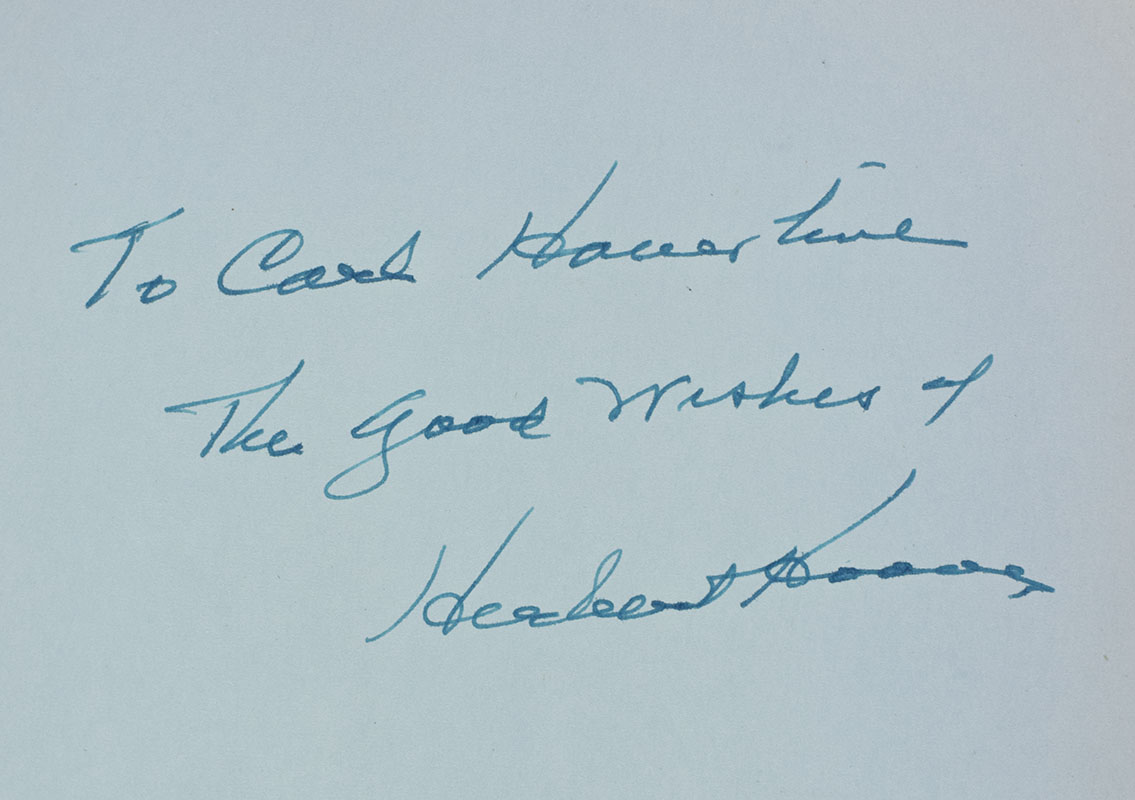 To Carl Haverline
The Good Wishes of
Herbert Hoover